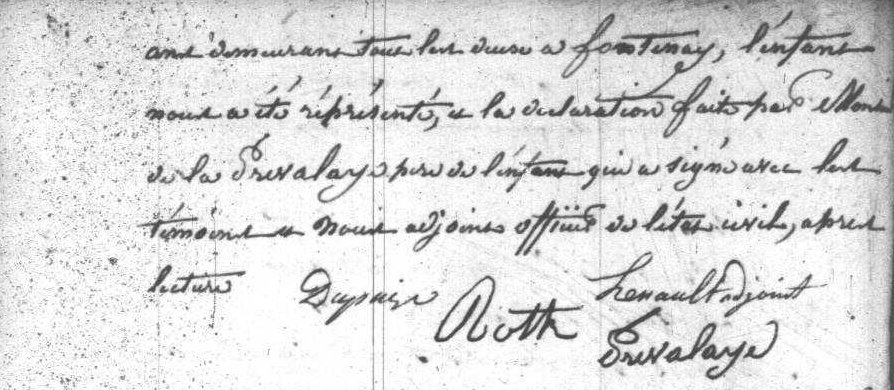 ans demeurans tous les deux a fontenay, l'enfans
nous a été réprésenté, et la declaration faite par Mons
de la Prevalaye pere de l'enfans qui a signé avec les
témoins et nous adjoint officier de l'état civil, apres
lecture Dupuize Roth henault adjoint
Prevalaye